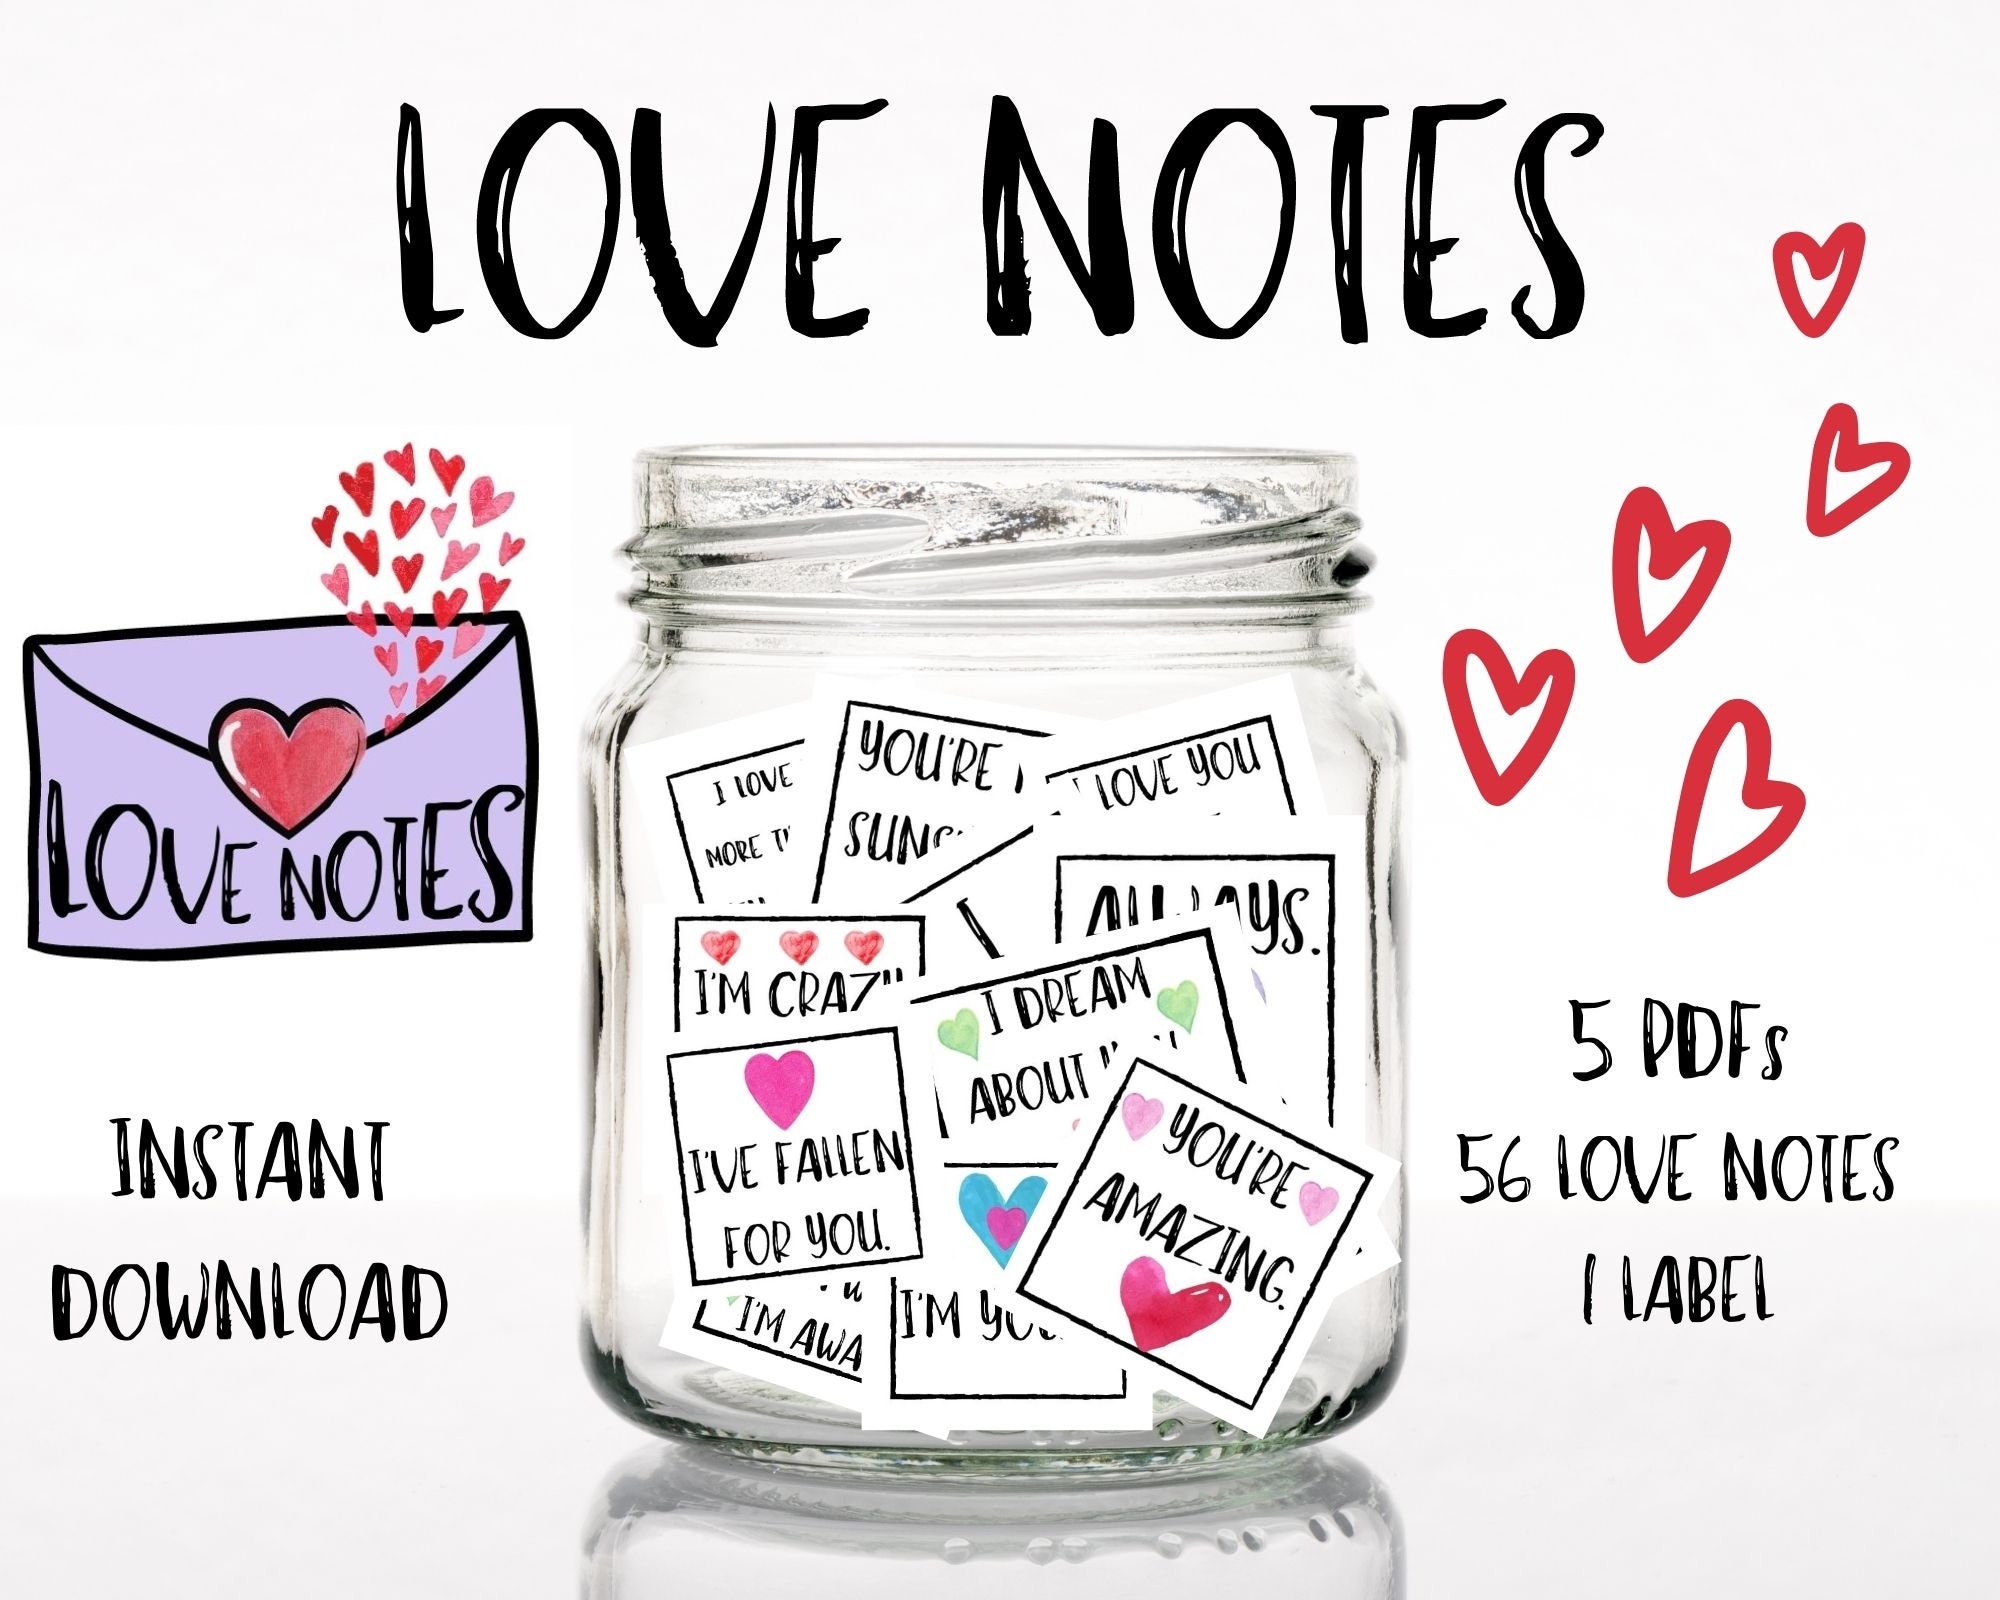 LOVE NOTES
LOVE NOTES
INSTANT
DOWNLOAD
I LOVE
MORE
YOU'RE
I LOVE YOU
I
ALWAYS.
I'M CRAZY
I DREAM
ABOUT
I'VE FALLEN
FOR YOU.
YOU'RE
AMAZING.
I'M
I'M
5 PDFs
56 LOVE NOTES
1 LABEL